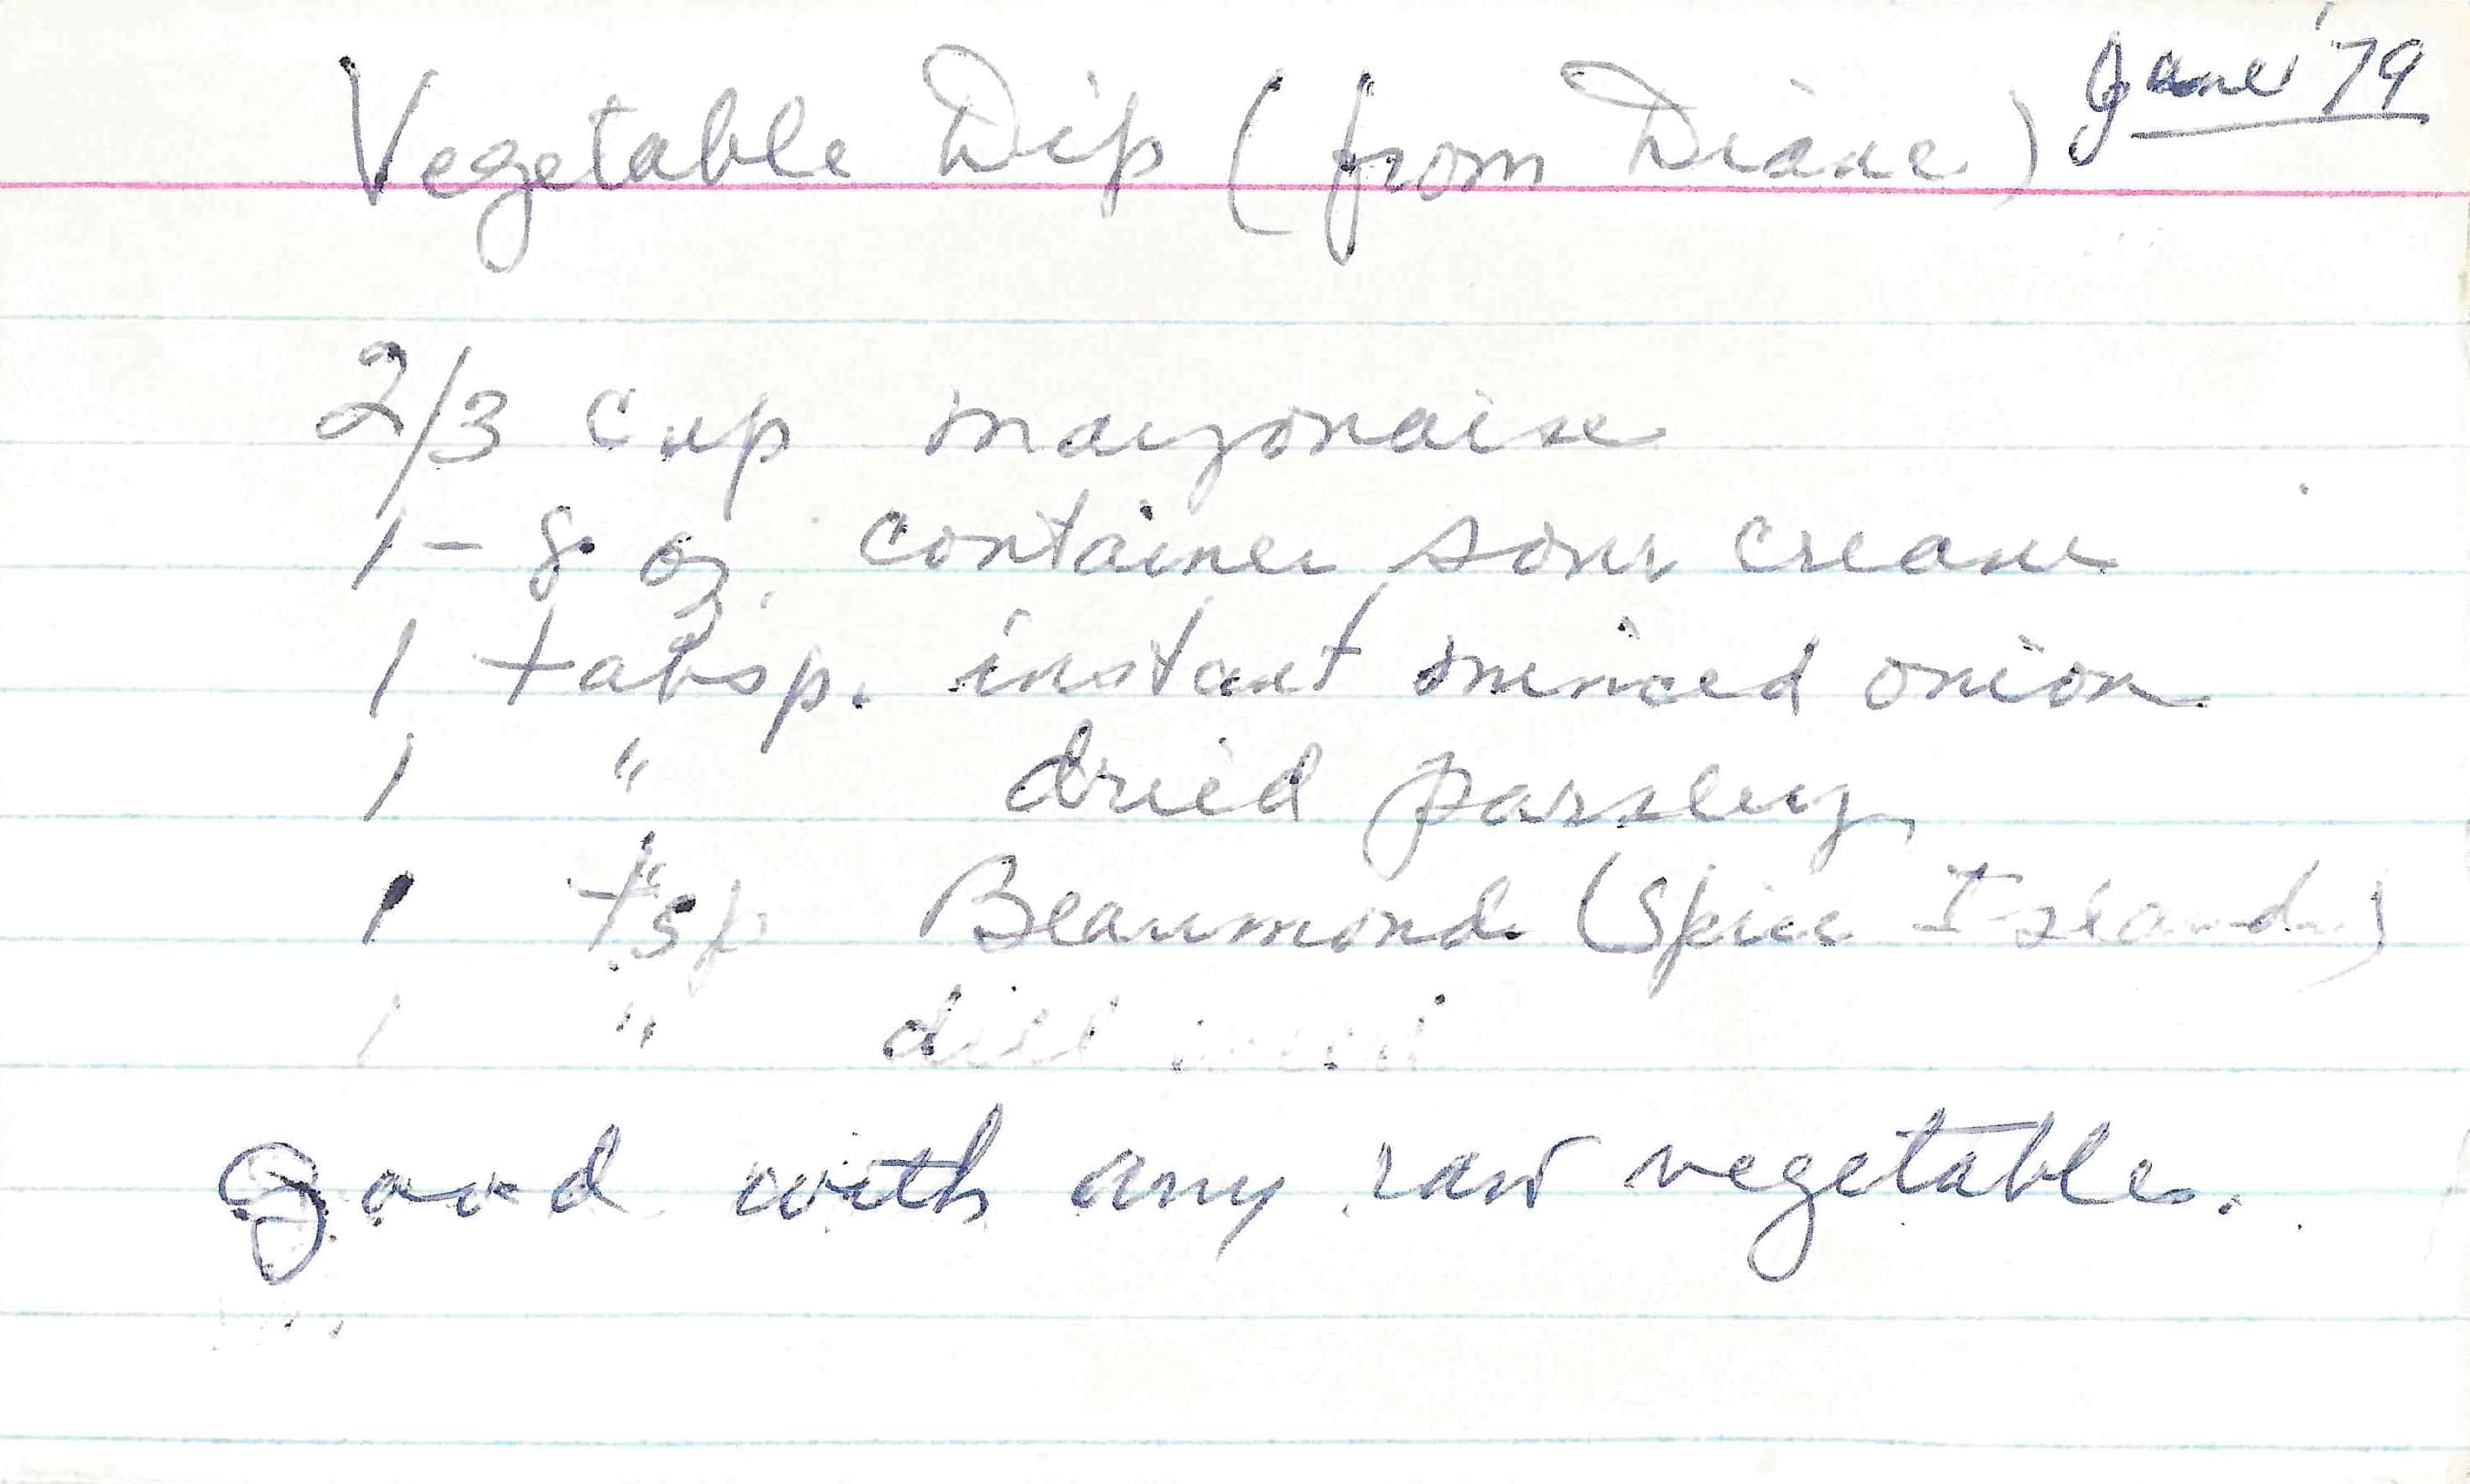 Vegetable Dip (from Diane) June '79
2/3 cup mayonaise
1 - 8 oz. container sour cream
1 tabsp. instant minced onion
1 " dried parsley
1 tsp Beaumond (Spice Islands)
1 " dill weed
Good with any raw vegetable.